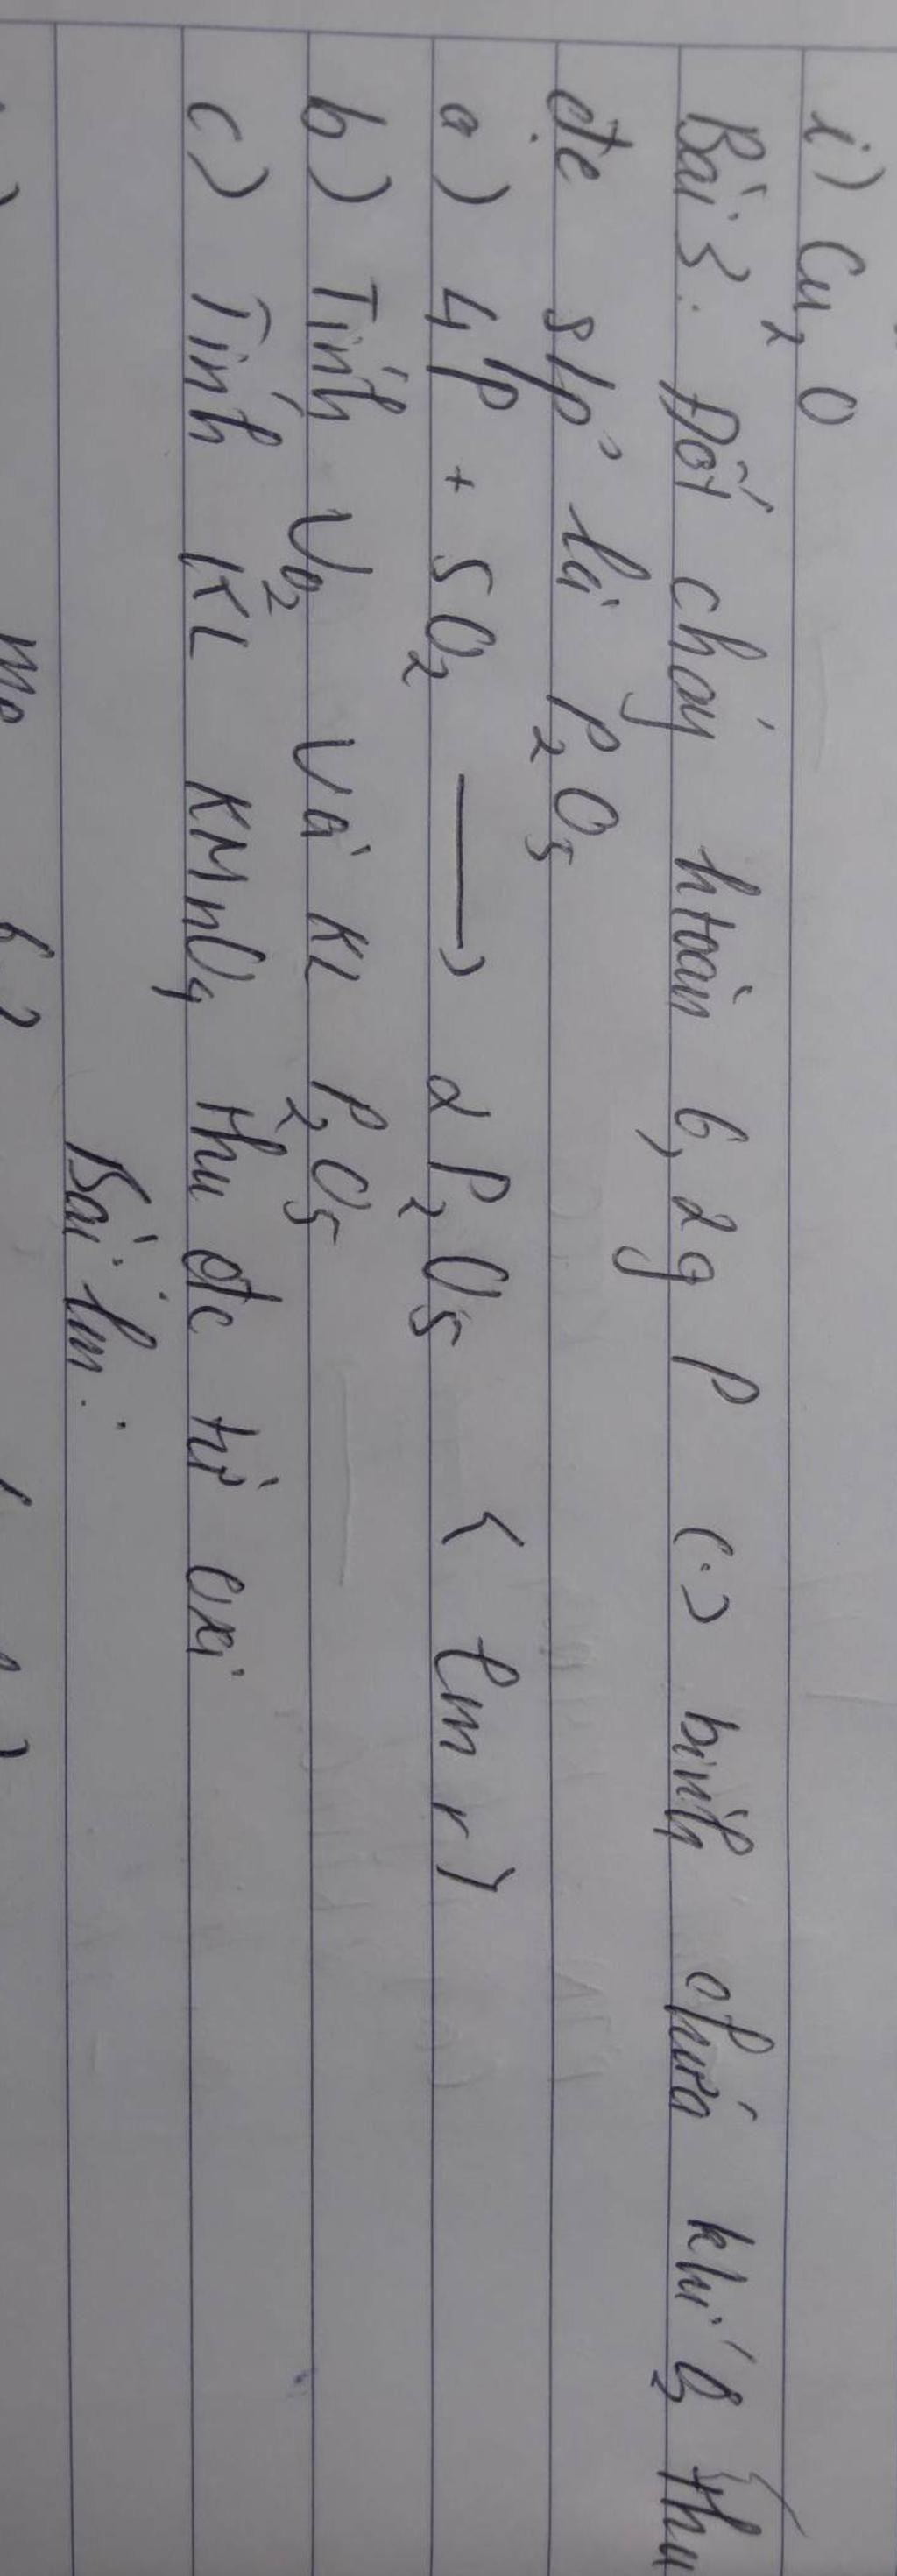 i) Cu₂O
Bài 3. Đốt cháy htoàn 6,2g P (.) bình chứa khí O₂ thu
đc s/p' là P₂O₅
a) 4P + 5O₂ ⟶ 2P₂O₅ < lm r)
b) Tính VO₂ và KL P₂O₅
c) Tính KL KMnO₄ thu đc từ oxi
Bài lm: